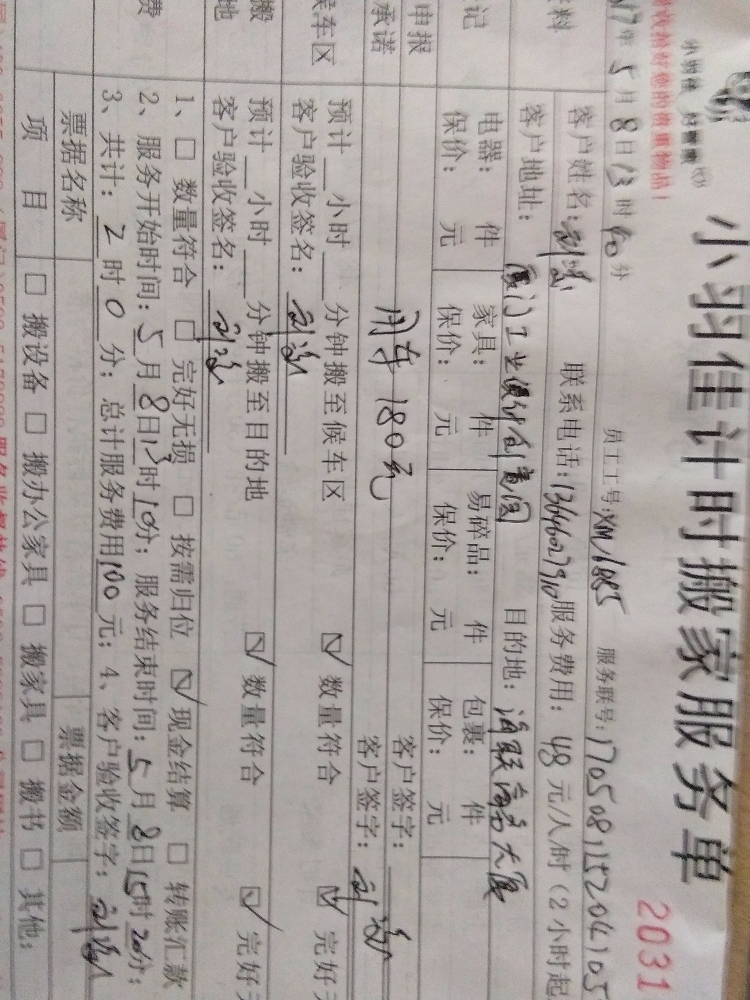 小羽佳计时搬家服务单
2031
小羽佳 好
收拾好您的贵重物品！
17年5月8日13时40分 员工工号：XM1885 服务联号：170508115204105
客户姓名： 联系电话：13646027910 服务费用：48元/人/时（2小时起
客户地址：厦门工业设计创意园 目的地：海联商务大厦
电器： 件 家具： 件 易碎品： 件 包裹： 件
保价： 元 保价： 元 保价： 元 保价： 元
申报 用车180元 客户签字：
承诺 客户签字：
候车区 预计 小时 分钟搬至候车区 ☑ 数量符合 ☑ 完好
客户验收签名：
搬 预计 小时 分钟搬至目的地 ☑ 数量符合 ☑ 完好
地 客户验收签名：
1、□ 数量符合 □ 完好无损 □ 按需归位 ☑ 现金结算 □ 转账汇款
费 2、服务开始时间：5月8日13时10分；服务结束时间：5月8日15时20分；
3、共计：2时0分；总计服务费用100元；4、客户验收签字：
票据名称 票据金额
项 目 □ 搬设备 □ 搬办公家具 □ 搬家具 □ 搬书 □ 其他：